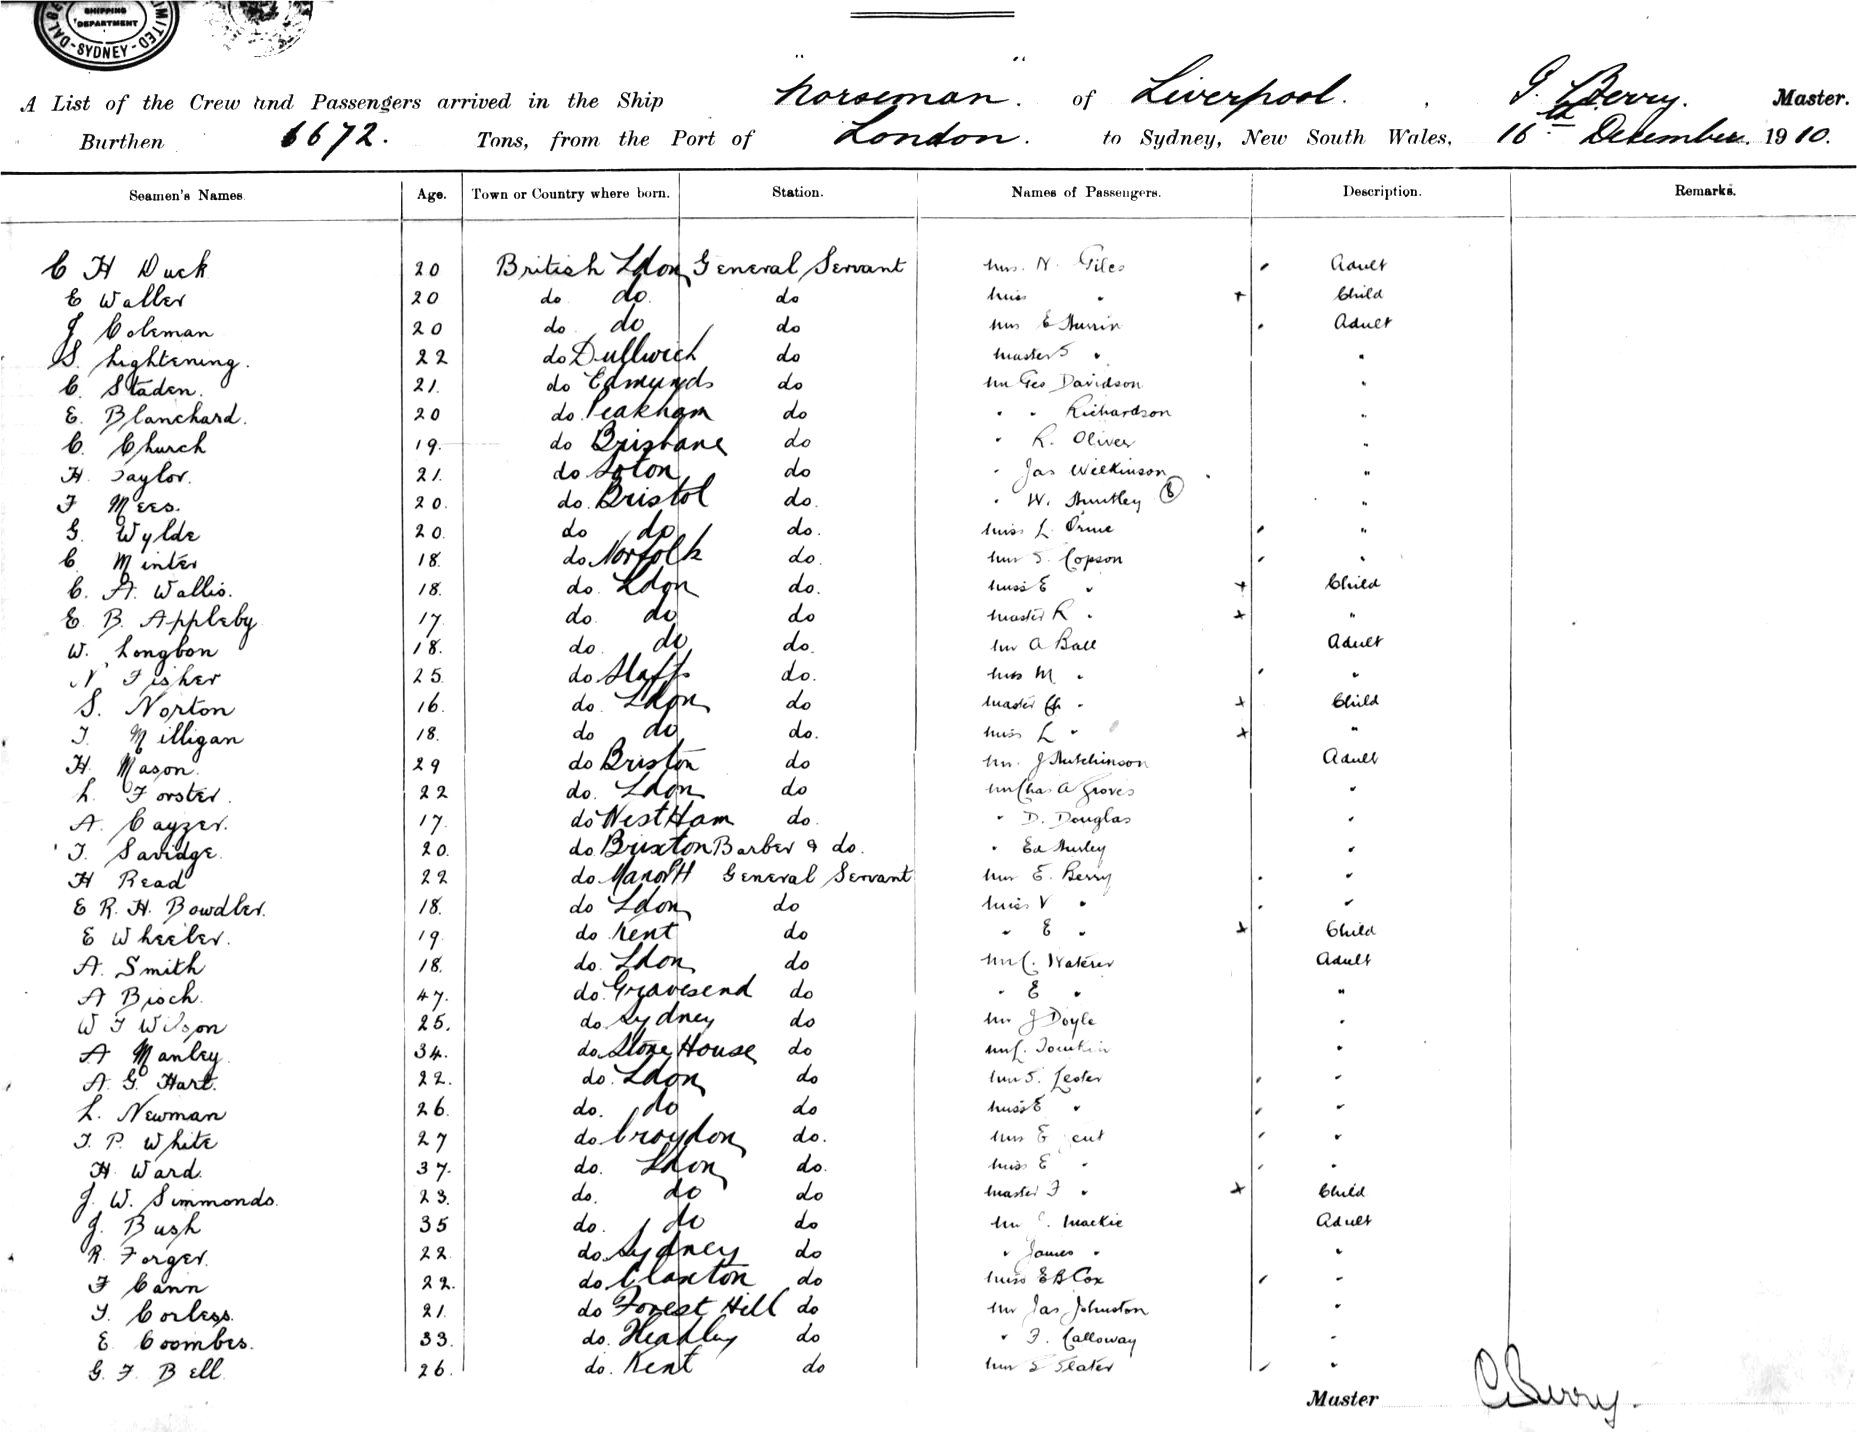 SHIPPING
DEPARTMENT
SYDNEY
A List of the Crew and Passengers arrived in the Ship "Norseman". of Liverpool. Berry. Master.
Burthen 6672. Tons, from the Port of London. to Sydney, New South Wales, 16th December. 1910.
Seamen's Names Age. Town or Country where born. Station. Names of Passengers. Description. Remarks.
C H Duck 20 British Ldon General Servant Mrs. N. Giles Adult
E Waller 20 do do. do Miss " + Child
J Coleman 20 do. do do Mrs E Adult
S. Lightening. 22 do Dullwich do Master S " "
C. Staden. 21. do Edmunds do Mr Geo Davidson "
E. Blanchard. 20 do. Peakham do " " Richardson "
C. Church 19. do Brisbane do " R. Oliver "
H. Taylor. 21. do Soton do " Jas Wilkinson "
F Mees. 20. do. Bristol do. " W. Huntley "
G. Wylde 20. do do do. Miss L. Orme "
C. Minter 18. do Norfolk do. Mrs S. Copson "
C. A. Wallis. 18. do. Ldon do. Miss E " + Child
E. B. Appleby 17 do. do do Master R " + "
W. Longbon 18. do. do do. Mr A Ball Adult
N Fisher 25. do Staffs do. Miss M " "
S. Norton 16. do. Ldon do Master " + Child
T. Milligan 18. do do do. Miss L " + "
H. Mason. 29 do Briston do Mr. J Hutchinson Adult
L. Forster. 22 do. Ldon do Mr Chas A Groves "
A. Cayzer. 17. do West Ham do. " D. Douglas "
T. Savidge. 20. do. Brixton Barber & do. " Ed Hurley "
H Read 22 do. Manor H General Servant Mrs E. Berry "
E R. H. Bowdler. 18. do Ldon do Miss V " "
E Wheeler. 19. do Kent do " E " + Child
A. Smith 18. do. Ldon do Mr C. Waterer Adult
A Bioch. 47. do. Gravesend do " E " "
W F Wilson 25. do. Sydney do Mr J Doyle "
A Manley. 34. do. Stone House do Mr "
A. G. Hart. 22. do. Ldon do Mrs S. Lester "
L. Newman 26. do. do do Miss E " "
T. P. White 27 do. Croydon do. Mrs E "
H. Ward. 37. do. Ldon do. Miss E " "
J. W. Simmonds. 23. do. do do Master F " + Child
J. Bush 35 do. do do Mr Mackie Adult
R. Forger. 22. do. Sydney do " James " "
F Cann 22. do. Claxton do Miss E B Cox "
T. Corless. 21. do Forest Hill do Mr Jas Johnston "
E. Coombes. 33. do. Headley do " F. Calloway "
G. F. Bell. 26. do. Kent do Mrs S Slater "
Master C Berry.